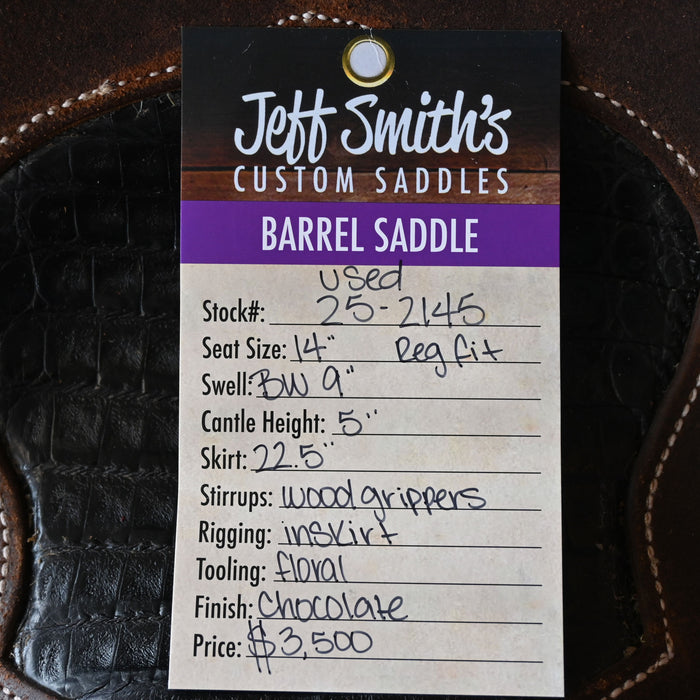 Jeff Smith's
CUSTOM SADDLES
BARREL SADDLE
used
Stock#: 25-2145
Seat Size: 14" Reg fit
Swell: BW 9"
Cantle Height: 5"
Skirt: 22.5"
Stirrups: wood grippers
Rigging: inskirt
Tooling: floral
Finish: Chocolate
Price: $3,500